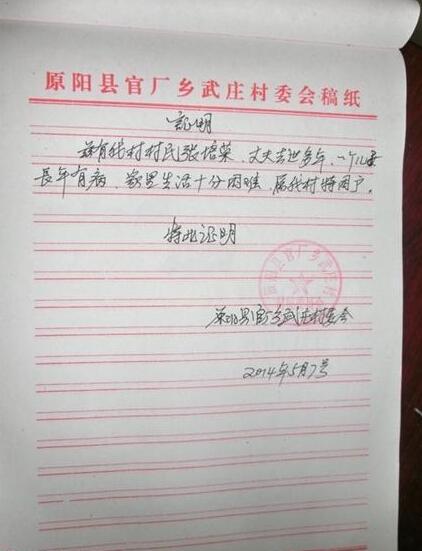 原阳县官厂乡武庄村委会稿纸
证明
兹有我村村民张培荣，丈夫去世多年，一个儿子
长年有病，家里生活十分困难，属我村特困户。
特此证明
原阳县官厂乡武庄村委会
原阳县官厂乡武庄村
2014年5月7号